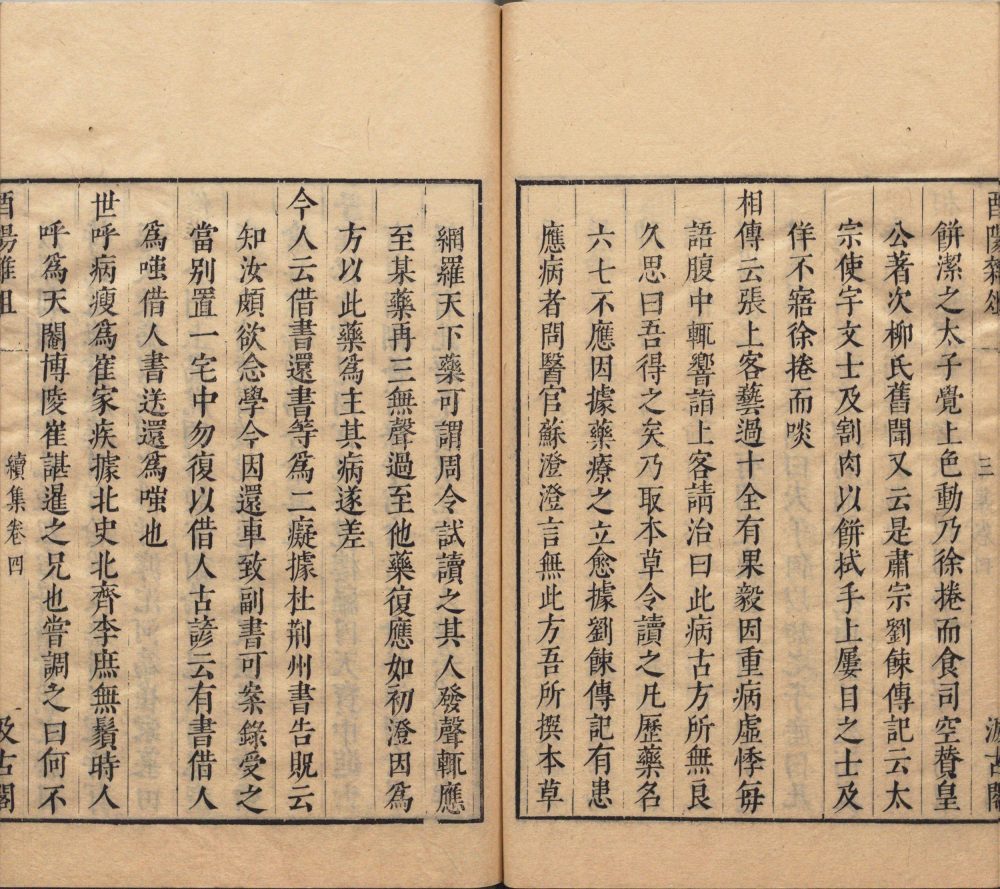 酉陽雜俎
三
汲古閣
餅潔之太子覺上色動乃徐捲而食司空贊皇
公著次柳氏舊聞又云是肅宗劉餗傳記云太
宗使宇文士及割肉以餅拭手上屢目之士及
佯不寤徐捲而啖
相傳云張上客藝過十全有果毅因重病虛悸每
語腹中輒響詣上客請治曰此病古方所無良
久思曰吾得之矣乃取本草令讀之凡歷藥名
六七不應因據藥療之立愈據劉餗傳記有患
應病者問醫官蘇澄澄言無此方吾所撰本草
網羅天下藥可謂周令試讀之其人發聲輒應
至某藥再三無聲過至他藥復應如初澄因為
方以此藥為主其病遂差
今人云借書還書等為二癡據杜荊州書告貺云
知汝頗欲念學今因還車致副書可案錄受之
當別置一宅中勿復以借人古諺云有書借人
為嗤借人書送還為嗤也
世呼病瘦為崔家疾據北史北齊李庶無鬚時人
呼為天閹博陵崔諶暹之兄也嘗調之曰何不
酉陽雜俎
續集卷四
汲古閣